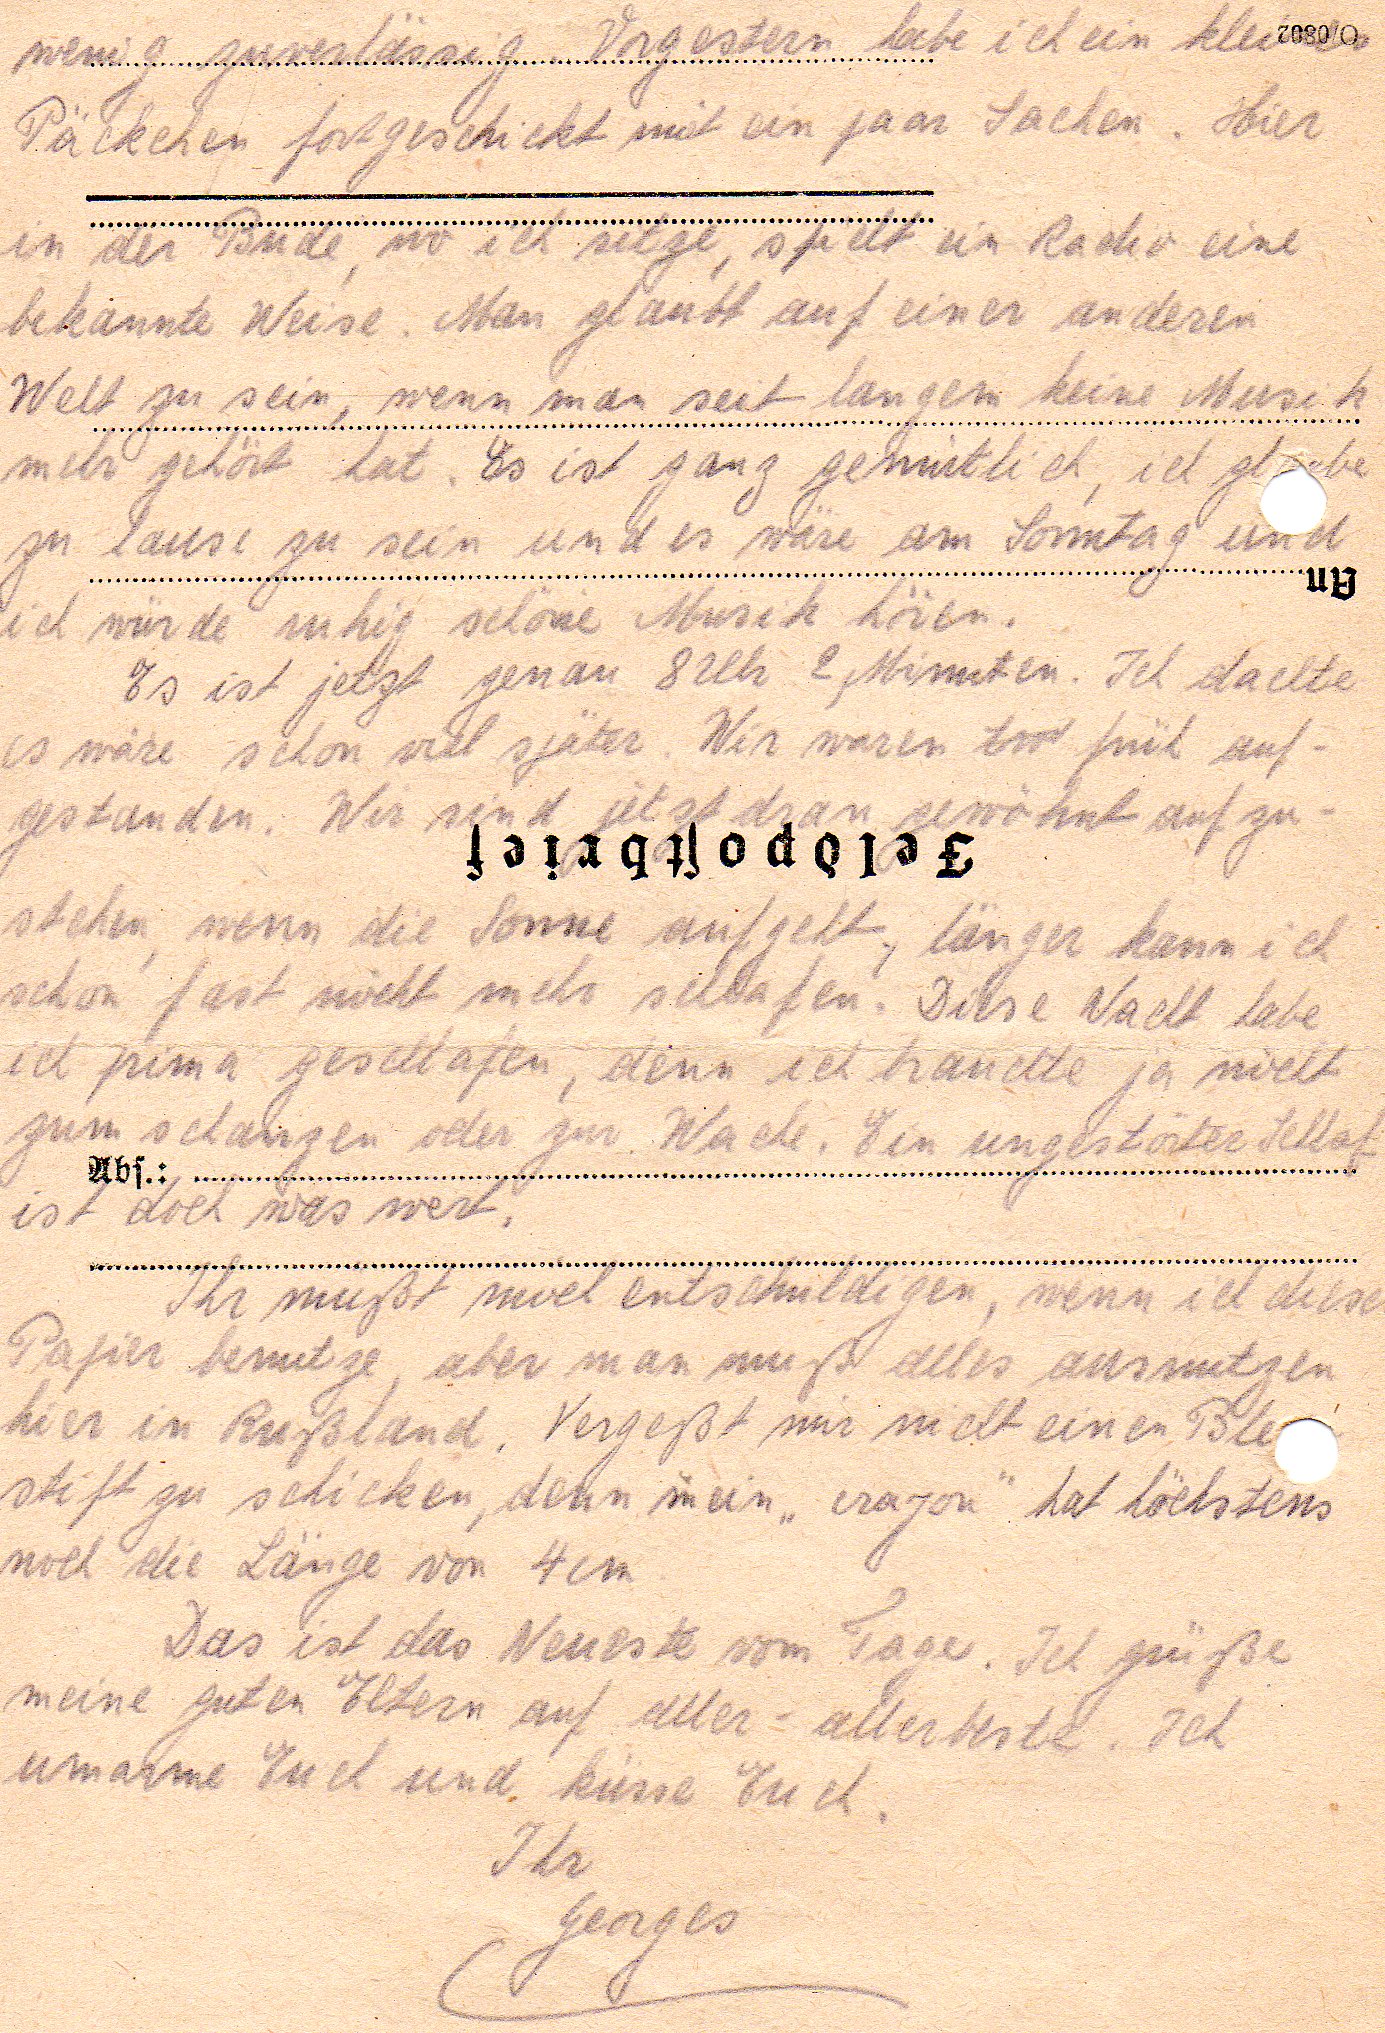 wenig zuverlässig. Vorgestern habe ich ein kleines
O/0802
Päckchen fortgeschickt mit ein paar Sachen. Hier
in der Bude, wo ich sitze, spielt ein Radio eine
bekannte Weise. Man glaubt auf einer anderen
Welt zu sein, wenn man seit langem keine Musik
mehr gehört hat. Es ist ganz gemütlich, ich glaube
zu hause zu sein und es wäre am Sonntag und
An
ich würde ruhig schöne Musik hören.
Es ist jetzt genau 8 Uhr 2 Minuten. Ich dachte
es wäre schon viel später. Wir waren früh auf-
gestanden. Wir sind jetzt dran gewöhnt aufzu-
Feldpostbrief
stehen, wenn die Sonne aufgeht, länger kann ich
schon fast nicht mehr schlafen. Diese Nacht habe
ich prima geschlafen, denn ich brauchte ja nicht
zum schanzen oder zur Wache. Ein ungestörter Schlaf
Abs.:
ist doch was wert.
Ihr müßt mich entschuldigen, wenn ich dieses
Papier benutze, aber man muß alles ausnutzen
hier in Rußland. Vergeßt mir nicht einen Blei
stift zu schicken, denn mein „crayon" hat höchstens
noch die Länge von 4 cm
Das ist das Neueste vom Tage. Ich grüße
meine guten Eltern auf aller-allerbeste. Ich
umarme Euch und küsse Euch.
Ihr
Georges